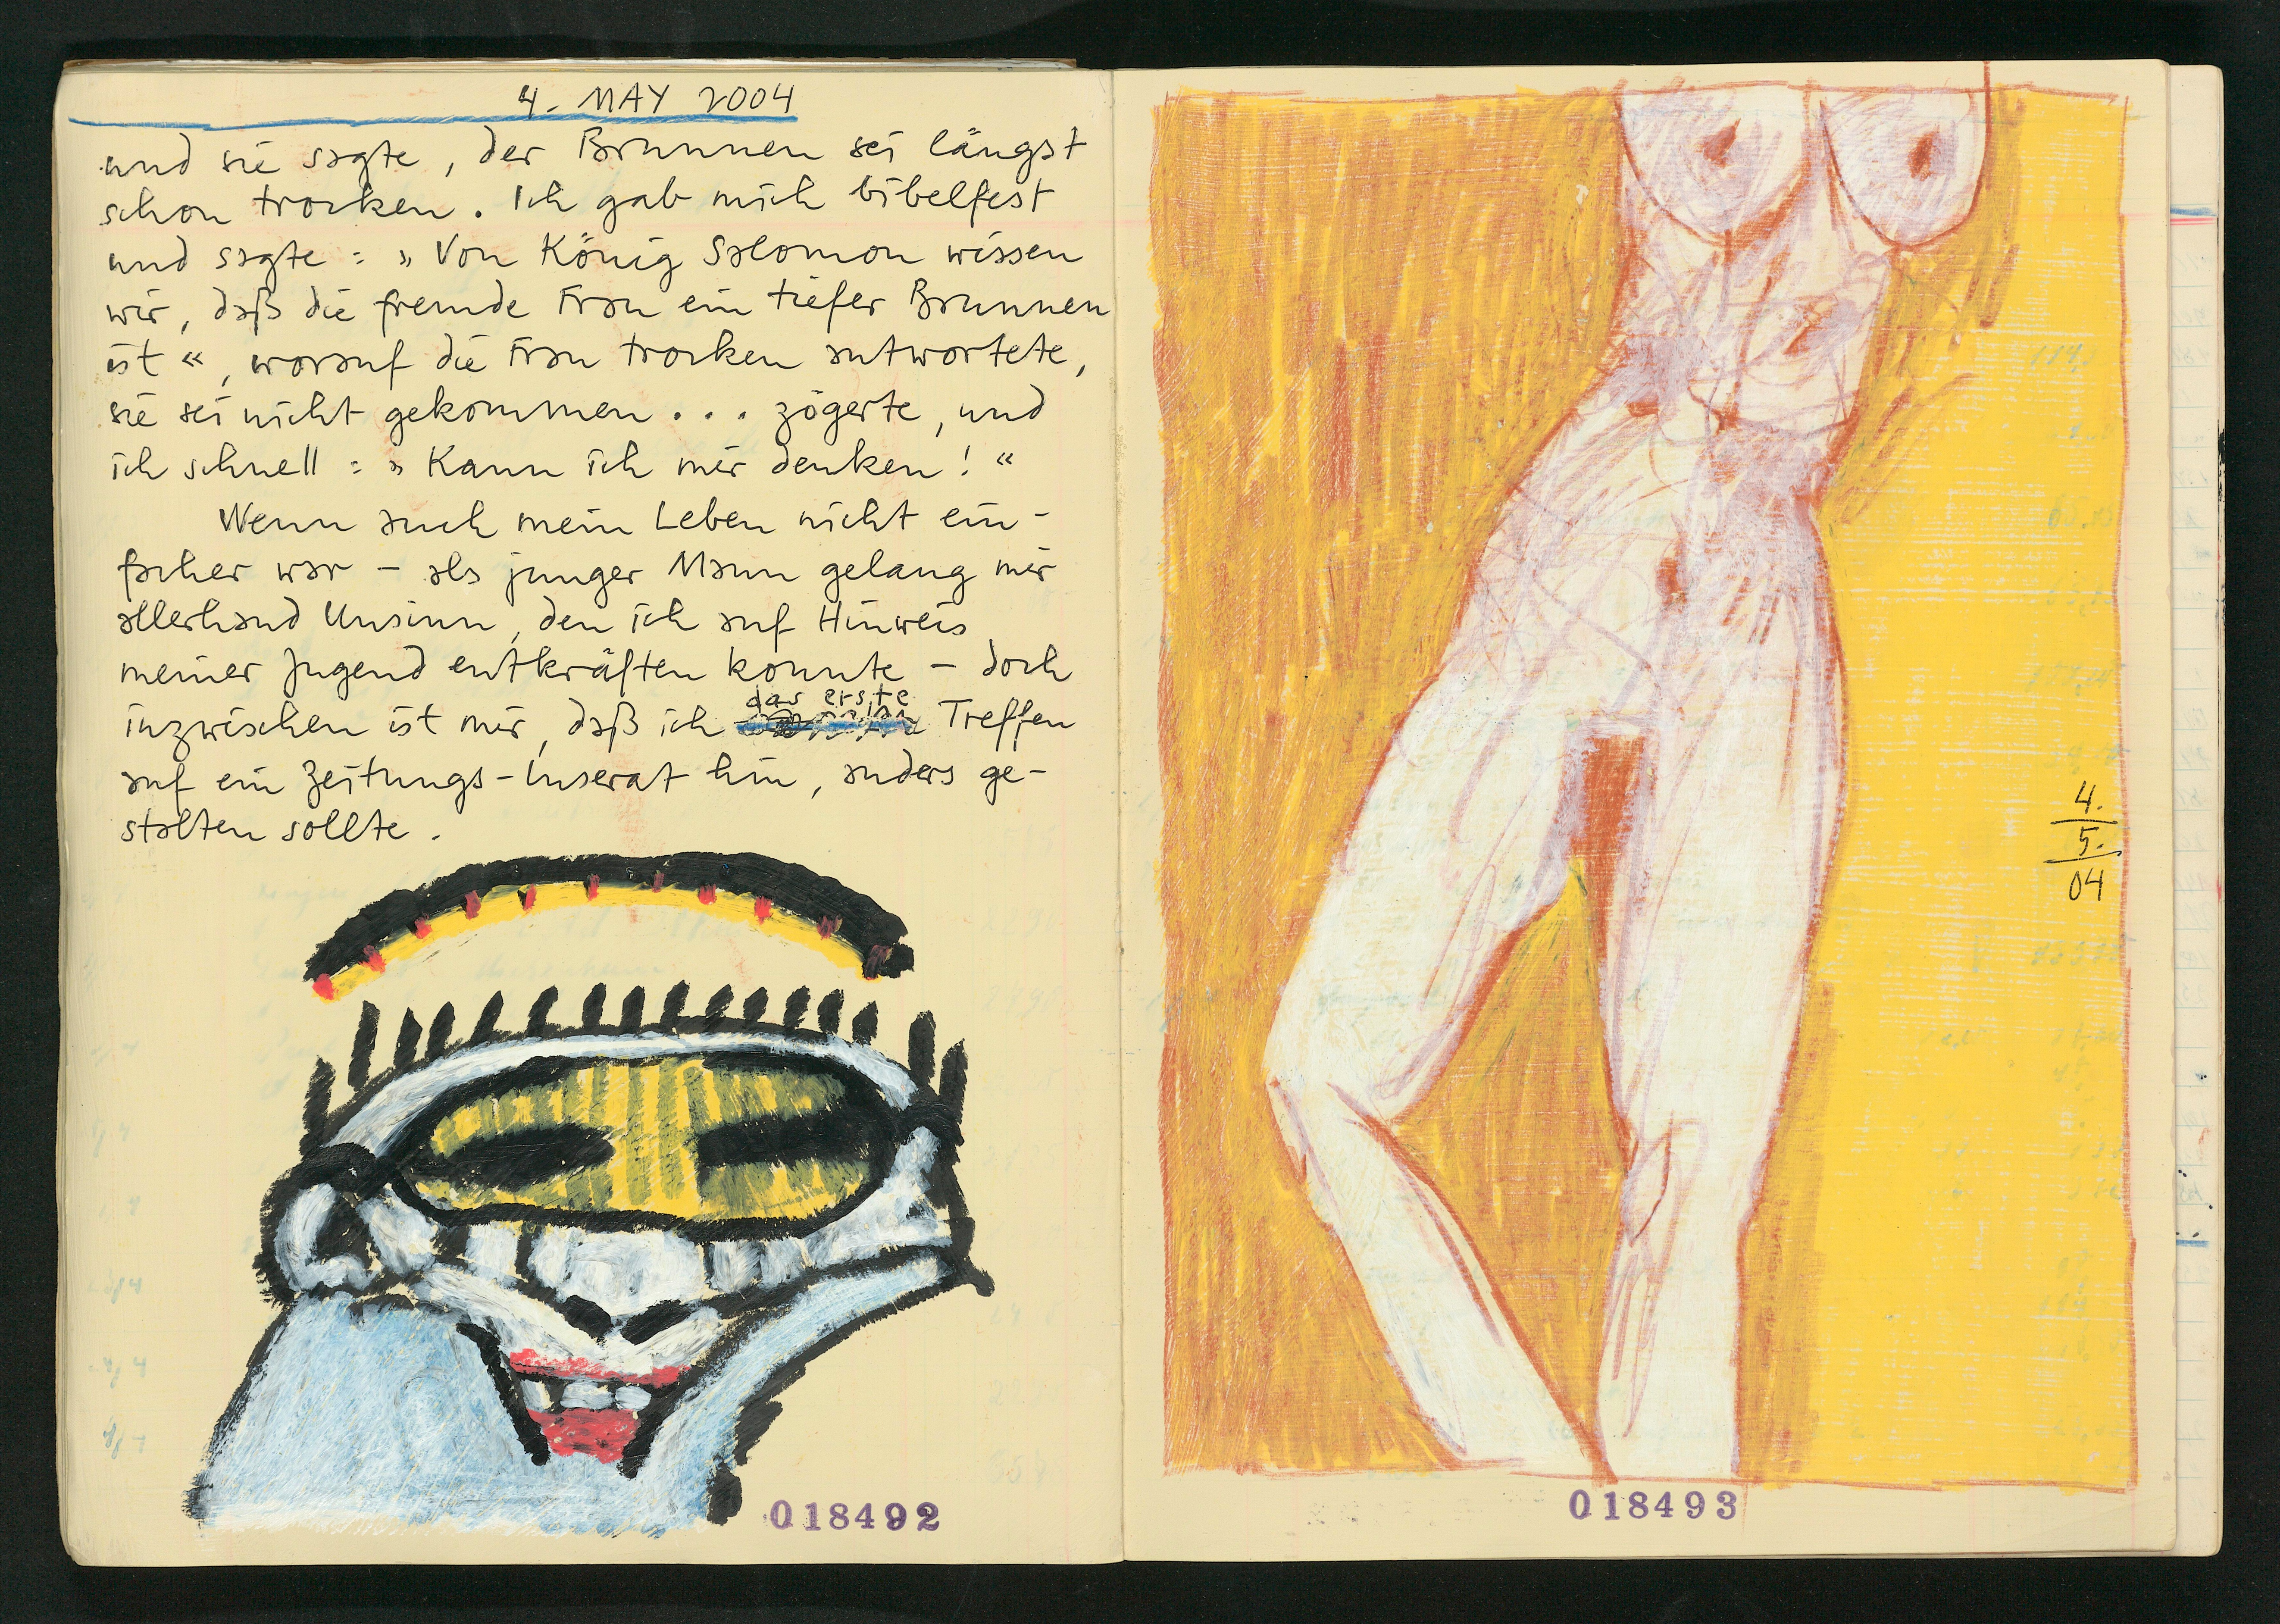 4. MAY 2004
und sie sagte, der Brunnen sei längst
schon trocken. Ich gab mich bibelfest
und sagte: »Von König Salomon wissen
wir, daß die fremde Frau ein tiefer Brunnen
ist«, worauf die Frau trocken antwortete,
sie sei nicht gekommen... zögerte, und
ich schnell: »Kann ich mir denken!«
Wenn auch mein Leben nicht ein-
facher war – als junger Mann gelang mir
allerhand Unsinn, den ich auf Hinweis
meiner Jugend entkräften konnte – doch
das erste
inzwischen ist mir, daß ich Treffen
auf ein Zeitungs-Inserat hin, anders ge-
stalten sollte.
018492
4.
5.
04
018493